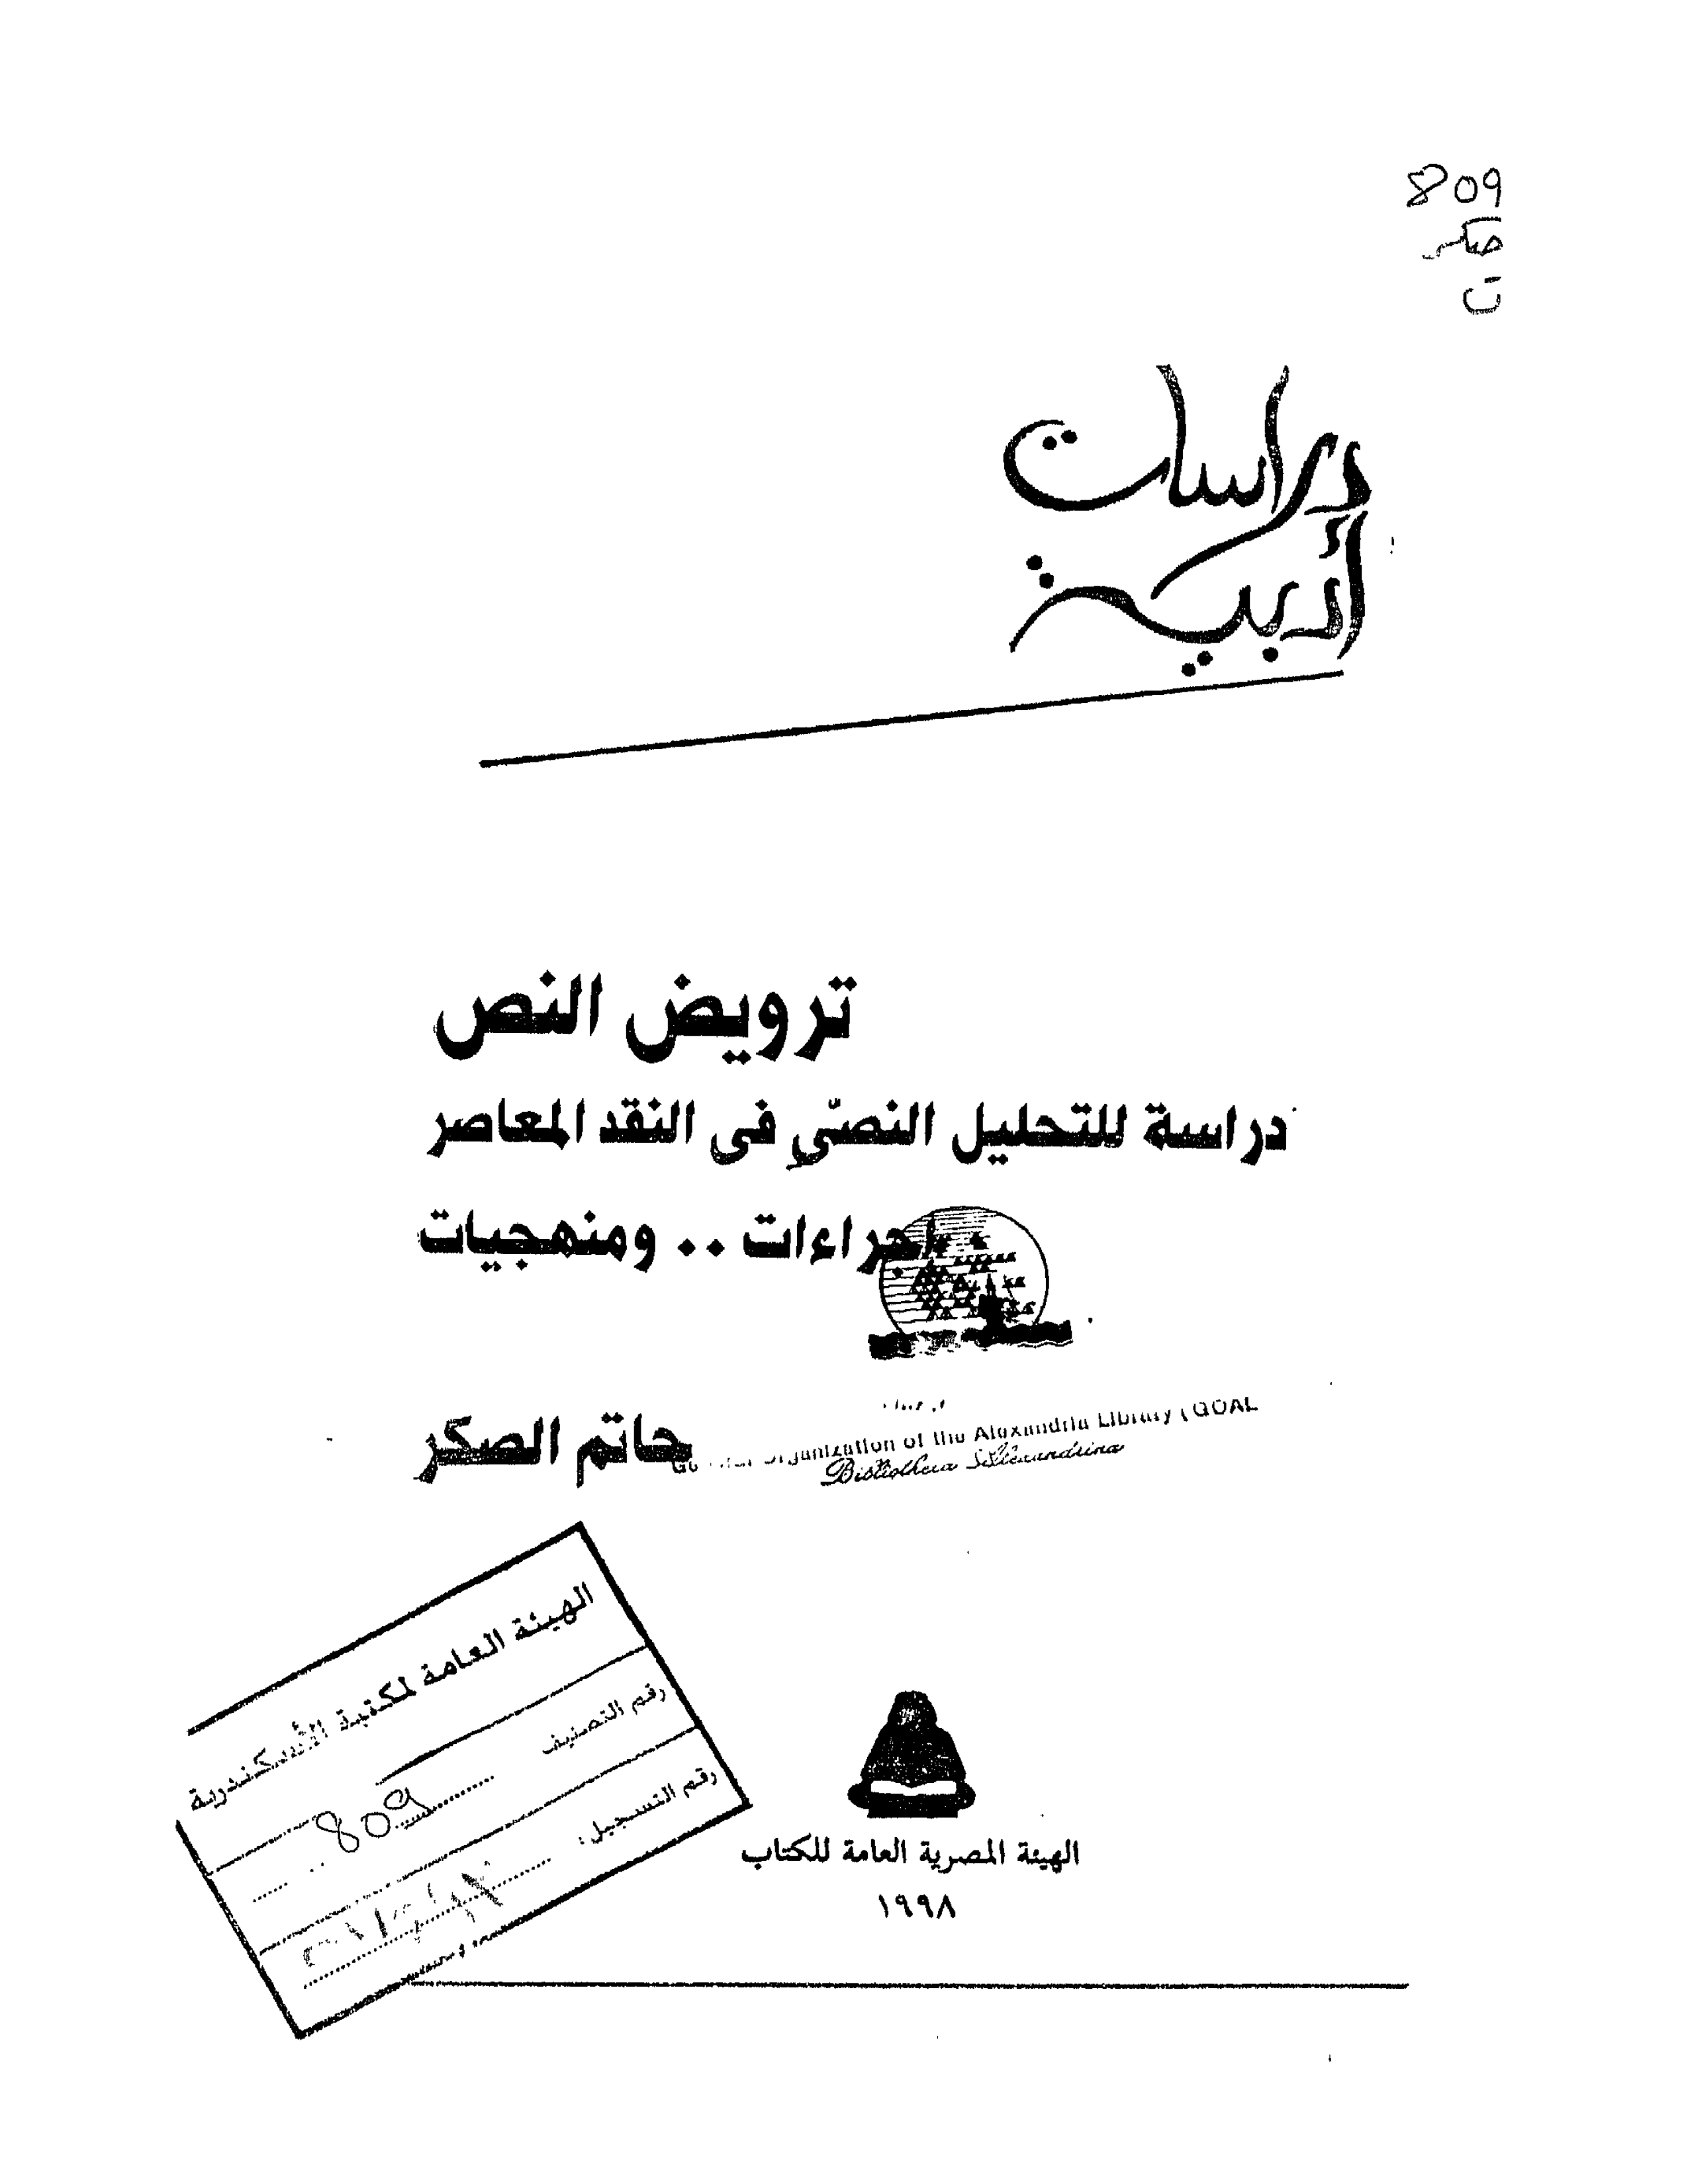 809
صكر
ت
دراسات
أدبية
ترويض النص
دراسة للتحليل النصّي فى النقد المعاصر
اجراءات .. ومنهجيات
حاتم الصكر
Organization of the Alexandria Library (GOAL
Bibliotheca Alexandrina
الهيئة العامة لمكتبة الأسكندرية
رقم التصنيف 809
رقم التسجيل:
الهيئة المصرية العامة للكتاب
١٩٩٨